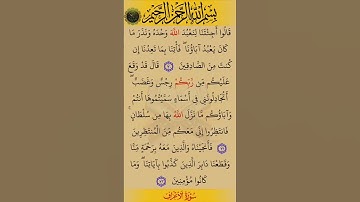 بسم الله الرحمن الرحيم
قَالُوا أَجِئْتَنَا لِنَعْبُدَ اللَّهَ وَحْدَهُ وَنَذَرَ مَا
كَانَ يَعْبُدُ آبَاؤُنَا فَأْتِنَا بِمَا تَعِدُنَا إِن
كُنتَ مِنَ الصَّادِقِينَ ٧٠ قَالَ قَدْ وَقَعَ
عَلَيْكُم مِّن رَّبِّكُمْ رِجْسٌ وَغَضَبٌ
أَتُجَادِلُونَنِي فِي أَسْمَاءٍ سَمَّيْتُمُوهَا أَنتُمْ
وَآبَاؤُكُم مَّا نَزَّلَ اللَّهُ بِهَا مِن سُلْطَانٍ
فَانتَظِرُوا إِنِّي مَعَكُم مِّنَ الْمُنتَظِرِينَ
٧١ فَأَنجَيْنَاهُ وَالَّذِينَ مَعَهُ بِرَحْمَةٍ مِّنَّا
وَقَطَعْنَا دَابِرَ الَّذِينَ كَذَّبُوا بِآيَاتِنَا وَمَا
كَانُوا مُؤْمِنِينَ ٧٢
سورة الأعراف